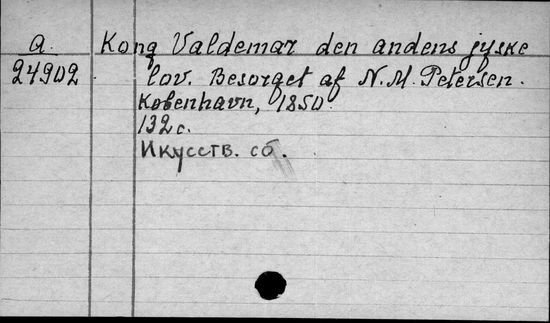 A. Kong Valdemar den andens jyske
24902 lov. Besorget af N. M. Petersen.
København, 1850.
132 с.
Икусств. сб.